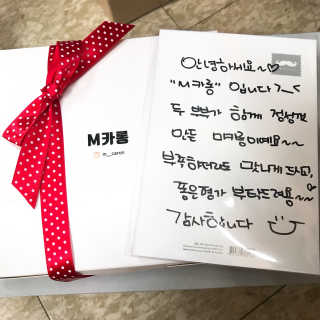 M카롱
안녕하세요~♡
"M카롱" 입니다^^
두 부부가 함께 정성껏
만든 마카롱이예요~~
부족하더라도 맛나게 드시고,
좋은평가 부탁드려용~~
감사합니다